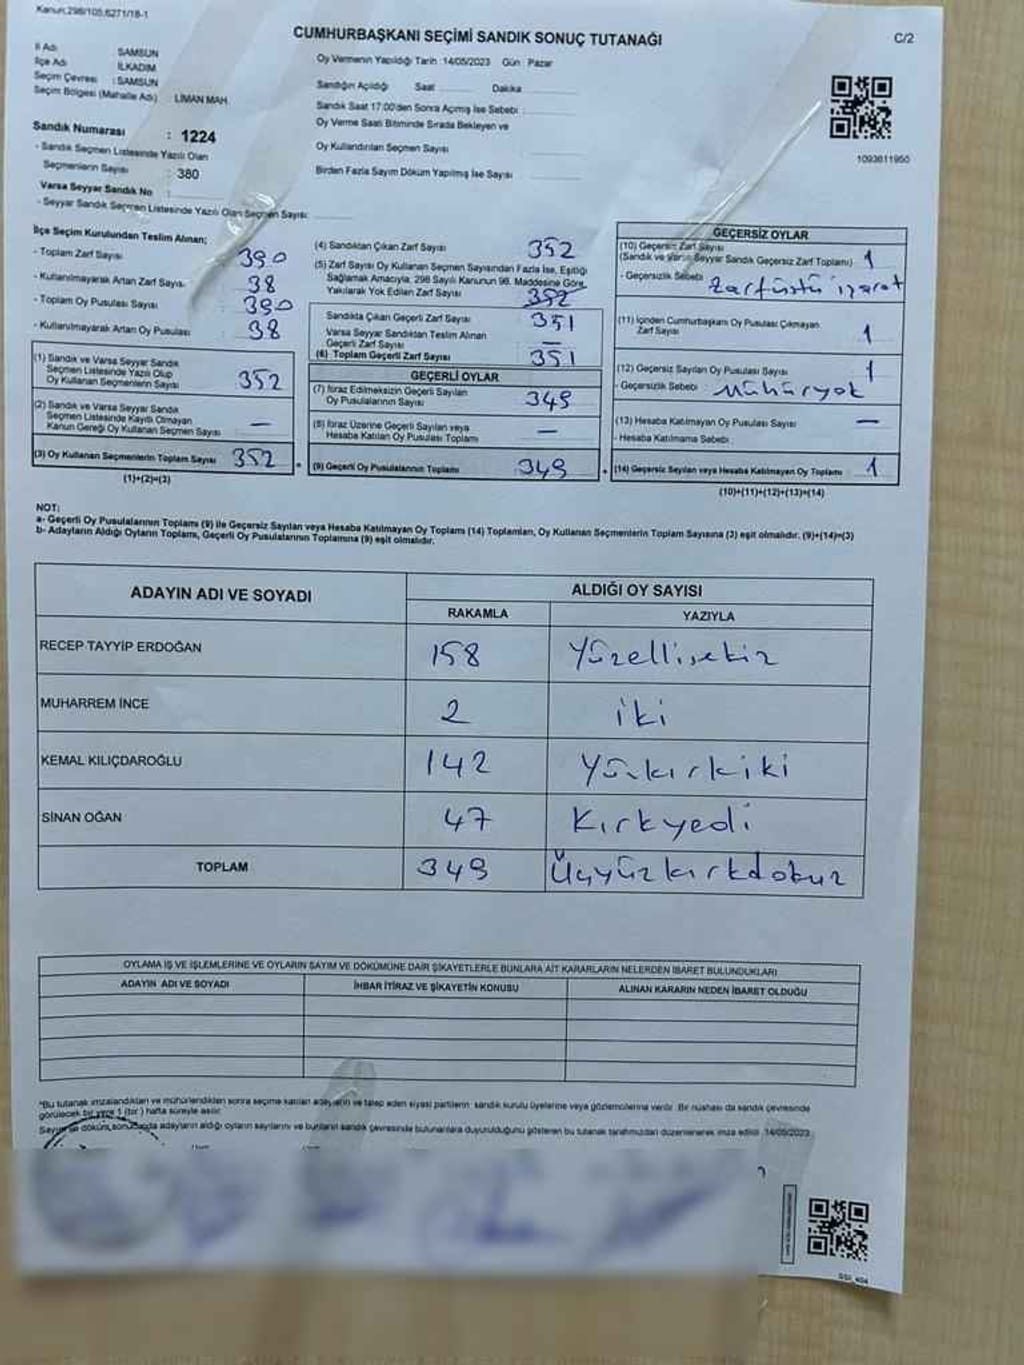 Kanun:298/105,6271/18-1
CUMHURBAŞKANI SEÇİMİ SANDIK SONUÇ TUTANAĞI
C/2
İl Adı SAMSUN
İlçe Adı İLKADIM
Seçim Çevresi : SAMSUN
Seçim Bölgesi (Mahalle Adı) : LİMAN MAH.
Sandık Numarası : 1224
- Sandık Seçmen Listesinde Yazılı Olan
Seçmenlerin Sayısı : 380
Varsa Seyyar Sandık No :
- Seyyar Sandık Seçmen Listesinde Yazılı Olan Seçmen Sayısı:
Oy Vermenin Yapıldığı Tarih :14/05/2023 Gün : Pazar
Sandığın Açıldığı Saat Dakika
Sandık Saat 17:00'den Sonra Açılmış İse Sebebi :
Oy Verme Saati Bitiminde Sırada Bekleyen ve
Oy Kullandırılan Seçmen Sayısı
Birden Fazla Sayım Döküm Yapılmış İse Sayısı
1093811950
İlçe Seçim Kurulundan Teslim Alınan;
- Toplam Zarf Sayısı 390
- Kullanılmayarak Artan Zarf Sayısı 38
- Toplam Oy Pusulası Sayısı 390
- Kullanılmayarak Artan Oy Pusulası 38
(1) Sandık ve Varsa Seyyar Sandık
Seçmen Listesinde Yazılı Olup
Oy Kullanan Seçmenlerin Sayısı 352
(2) Sandık ve Varsa Seyyar Sandık
Seçmen Listesinde Kayıtlı Olmayan
Kanun Gereği Oy Kullanan Seçmen Sayısı —
(3) Oy Kullanan Seçmenlerin Toplam Sayısı 352
(1)+(2)=(3)
(4) Sandıktan Çıkan Zarf Sayısı 352
(5) Zarf Sayısı Oy Kullanan Seçmen Sayısından Fazla İse, Eşitliği
Sağlamak Amacıyla, 298 Sayılı Kanunun 98. Maddesine Göre,
Yakılarak Yok Edilen Zarf Sayısı 352
Sandıkta Çıkan Geçerli Zarf Sayısı 351
Varsa Seyyar Sandıktan Teslim Alınan
Geçerli Zarf Sayısı —
(6) Toplam Geçerli Zarf Sayısı 351
GEÇERLİ OYLAR
(7) İtiraz Edilmeksizin Geçerli Sayılan
Oy Pusulalarının Sayısı 349
(8) İtiraz Üzerine Geçerli Sayılan veya
Hesaba Katılan Oy Pusulası Toplamı —
(9) Geçerli Oy Pusulalarının Toplamı 349
GEÇERSİZ OYLAR
(10) Geçersiz Zarf Sayısı
(Sandık ve Varsa Seyyar Sandık Geçersiz Zarf Toplamı) 1
- Geçersizlik Sebebi Zarfüstü işaret
(11) İçinden Cumhurbaşkanı Oy Pusulası Çıkmayan
Zarf Sayısı 1
(12) Geçersiz Sayılan Oy Pusulası Sayısı 1
- Geçersizlik Sebebi Mühüryok
(13) Hesaba Katılmayan Oy Pusulası Sayısı —
- Hesaba Katılmama Sebebi
(14) Geçersiz Sayılan veya Hesaba Katılmayan Oy Toplamı 1
(10)+(11)+(12)+(13)=(14)
NOT:
a- Geçerli Oy Pusulalarının Toplamı (9) ile Geçersiz Sayılan veya Hesaba Katılmayan Oy Toplamı (14) Toplamları, Oy Kullanan Seçmenlerin Toplam Sayısına (3) eşit olmalıdır. (9)+(14)=(3)
b- Adayların Aldığı Oyların Toplamı, Geçerli Oy Pusulalarının Toplamına (9) eşit olmalıdır.
ADAYIN ADI VE SOYADI
ALDIĞI OY SAYISI
RAKAMLA YAZIYLA
RECEP TAYYİP ERDOĞAN 158 Yüzellisekiz
MUHARREM İNCE 2 iki
KEMAL KILIÇDAROĞLU 142 Yüzkırkiki
SİNAN OĞAN 47 Kırkyedi
TOPLAM 349 Üçyüzkırkdokuz
OYLAMA İŞ VE İŞLEMLERİNE VE OYLARIN SAYIM VE DÖKÜMÜNE DAİR ŞİKAYETLERLE BUNLARA AİT KARARLARIN NELERDEN İBARET BULUNDUKLARI
ADAYIN ADI VE SOYADI İHBAR İTİRAZ VE ŞİKAYETİN KONUSU ALINAN KARARIN NEDEN İBARET OLDUĞU
*Bu tutanak imzalandıktan ve mühürlendikten sonra seçime katılan adayların ve talep eden siyasi partilerin sandık kurulu üyelerine veya gözlemcilerine verilir. Bir nüshası da sandık çevresinde
görülecek bir yere 1 (bir) hafta süreyle asılır.
Sayım ve döküm sonucunda adayların aldığı oyların sayılarını ve bunların sandık çevresinde bulunanlara duyurulduğunu gösteren bu tutanak tarafımızdan düzenlenerek imza edildi. 14/05/2023